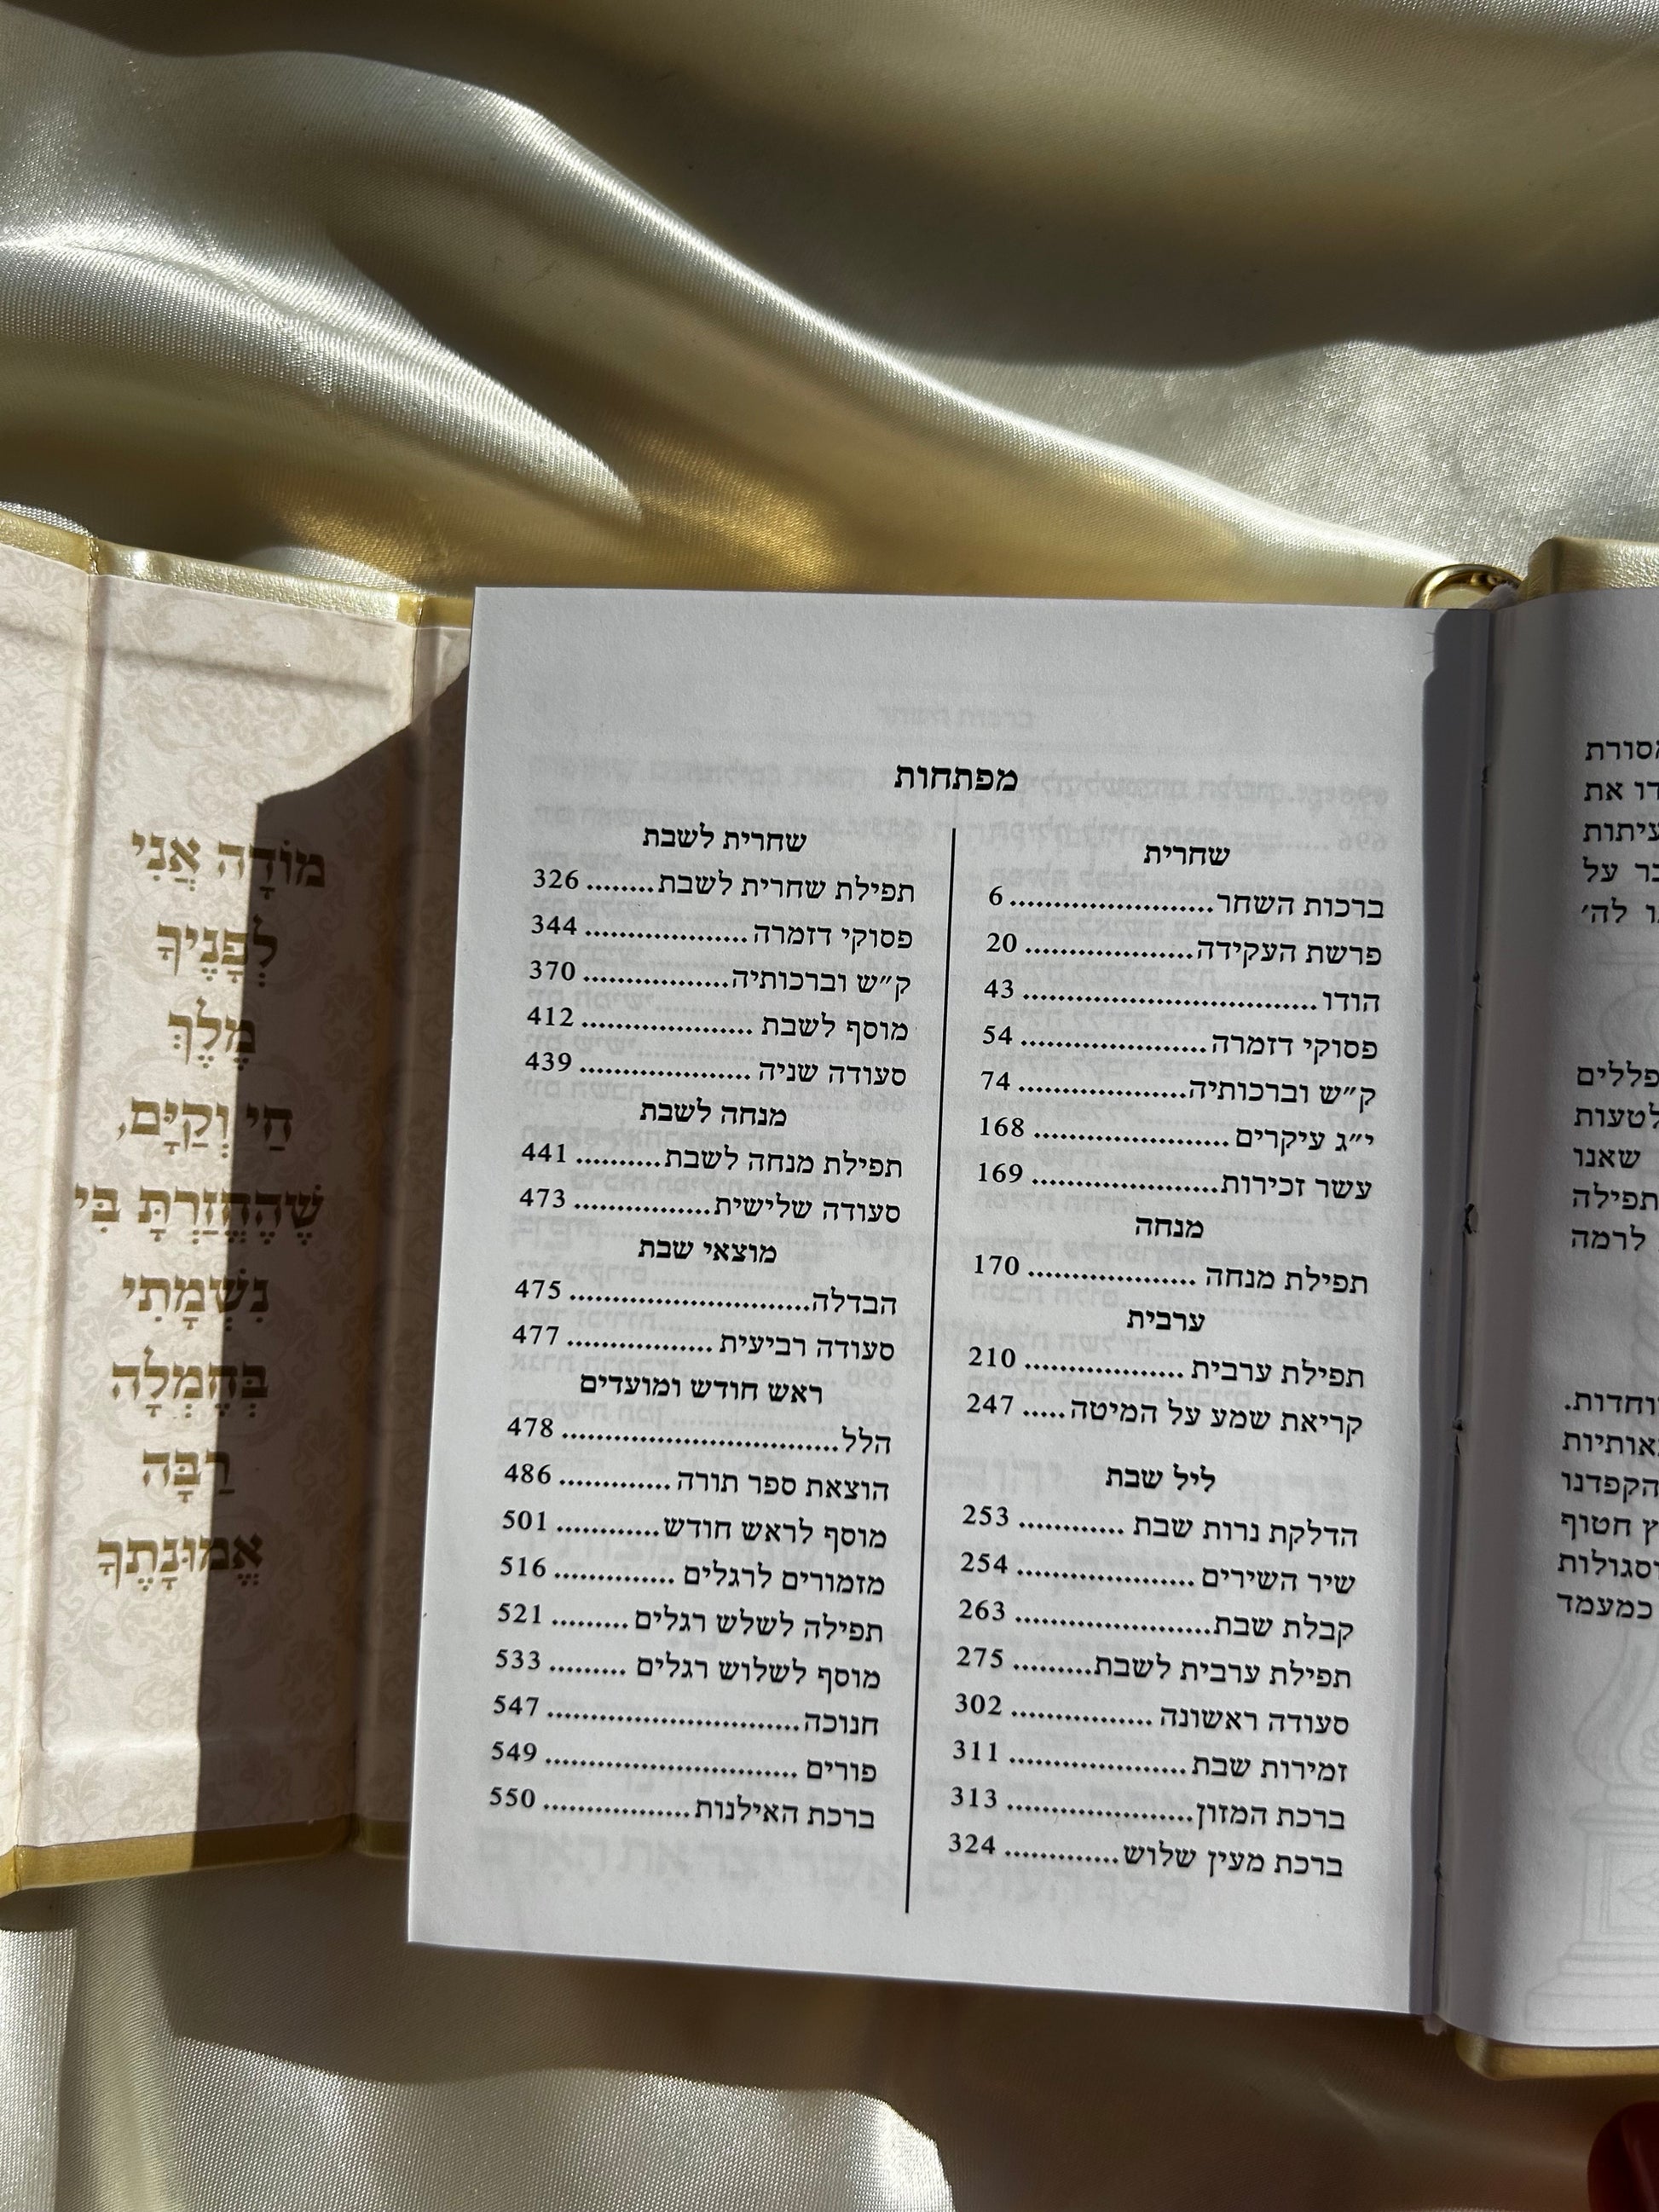 מפתחות
שחרית
ברכות השחר.......................6
פרשת העקידה...................20
הודו.................................43
פסוקי דזמרה.....................54
ק״ש וברכותיה...................74
י״ג עיקרים ......................168
עשר זכירות.....................169
מנחה
תפילת מנחה ...................170
ערבית
תפילת ערבית ..................210
קריאת שמע על המיטה.....247
ליל שבת
הדלקת נרות שבת ............253
שיר השירים....................254
קבלת שבת......................263
תפילת ערבית לשבת.........275
סעודה ראשונה ................302
זמירות שבת....................311
ברכת המזון.....................313
ברכת מעין שלוש.............324
שחרית לשבת
תפילת שחרית לשבת........326
פסוקי דזמרה...................344
ק״ש וברכותיה.................370
מוסף לשבת ....................412
סעודה שניה ....................439
מנחה לשבת
תפילת מנחה לשבת..........441
סעודה שלישית................473
מוצאי שבת
הבדלה...........................475
סעודה רביעית .................477
ראש חודש ומועדים
הלל................................478
הוצאת ספר תורה.............486
מוסף לראש חודש............501
מזמורים לרגלים ..............516
תפילה לשלש רגלים .........521
מוסף לשלוש רגלים .........533
חנוכה.............................547
פורים .............................549
ברכת האילנות.................550
מוֹדָה אֲנִי
לְפָנֶיךָ
מֶלֶךְ
חַי וְקַיָּם,
שֶׁהֶחֱזַרְתָּ בִּי
נִשְׁמָתִי
בְּחֶמְלָה
רַבָּה
אֱמוּנָתֶךָ
את
על
לה׳
שאנו
תפילה
לרמה
הקפדנו
חטוף
כמעמד